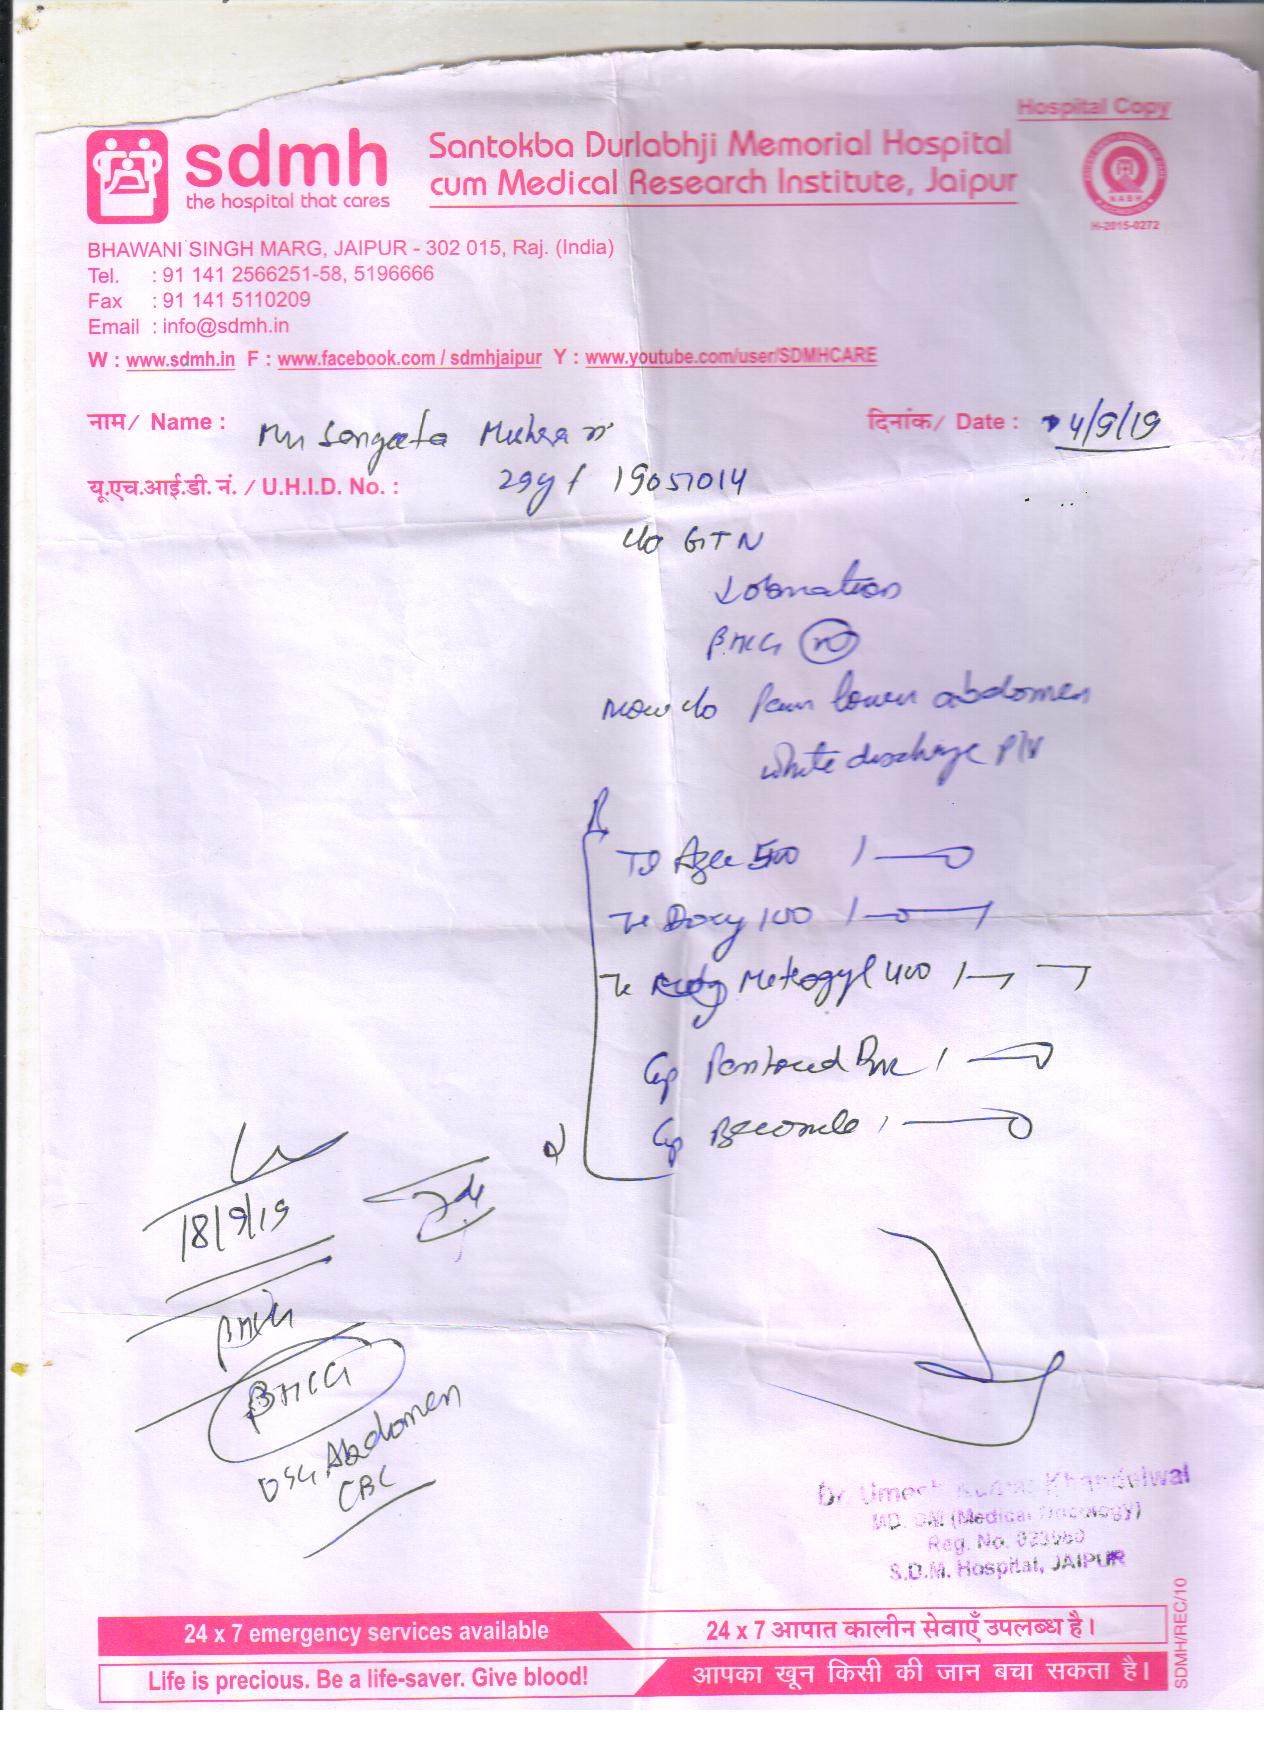 Hospital Copy
sdmh
the hospital that cares
Santokba Durlabhji Memorial Hospital
cum Medical Research Institute, Jaipur
NABH
H-2015-0272
BHAWANI SINGH MARG, JAIPUR - 302 015, Raj. (India)
Tel. : 91 141 2566251-58, 5196666
Fax : 91 141 5110209
Email : info@sdmh.in
W : www.sdmh.in F : www.facebook.com / sdmhjaipur Y : www.youtube.com/user/SDMHCARE
नाम/ Name : Sangeeta
दिनांक/ Date : 4/9/19
यू.एच.आई.डी. नं. / U.H.I.D. No. : 29y f 19051014
c/o GTN
βHCG
now c/o Pain lower abdomen
white discharge P/V
500 1
Doxy 100 1
Metrogyl 400 1
Cap 1
Cap 1
18/9/19
βHCG
βHCG
USG Abdomen
CBC
Dr. Umesh Khandelwal
MD. DM (Medical Oncology)
Reg. No.
S.D.M. Hospital, JAIPUR
24 x 7 emergency services available
24 x 7 आपात कालीन सेवाएँ उपलब्ध है।
Life is precious. Be a life-saver. Give blood!
आपका खून किसी की जान बचा सकता है।
SDMH/REC/10